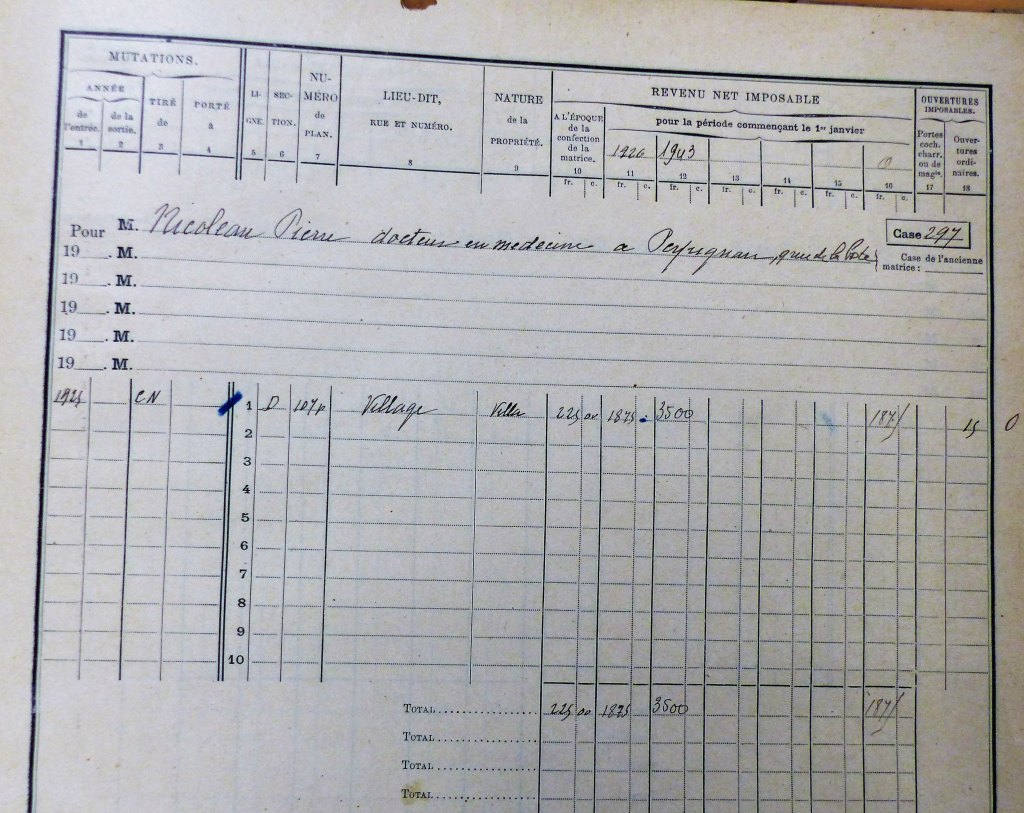 MUTATIONS.
ANNÉE
de l'entrée.
de la sortie.
TIRÉ de
PORTÉ à
LIGNE.
SECTION.
NUMÉRO de PLAN.
LIEU-DIT,
RUE ET NUMÉRO.
NATURE de la PROPRIÉTÉ.
REVENU NET IMPOSABLE
A L'ÉPOQUE de la confection de la matrice.
pour la période commençant le 1er janvier
1943
OUVERTURES IMPOSABLES.
Portes coch. charr. ou de magins.
Ouvertures ordinaires.
1 2 3 4 5 6 7 8 9 10 11 12 13 14 15 16 17 18
fr. c. fr. c. fr. c. fr. c. fr. c. fr. c. fr. c.
Pour M. Nicoleau Pierre docteur en medecine a Perpignan
Case 297
Case de l'ancienne matrice :
19 . M.
19 . M.
19 . M.
19 . M.
19 . M.
1925 CN 1 D Village Villa 225 00 1875 3500 187 15 0
2
3
4
5
6
7
8
9
10
TOTAL 225 00 1875 3500 187
TOTAL
TOTAL
TOTAL